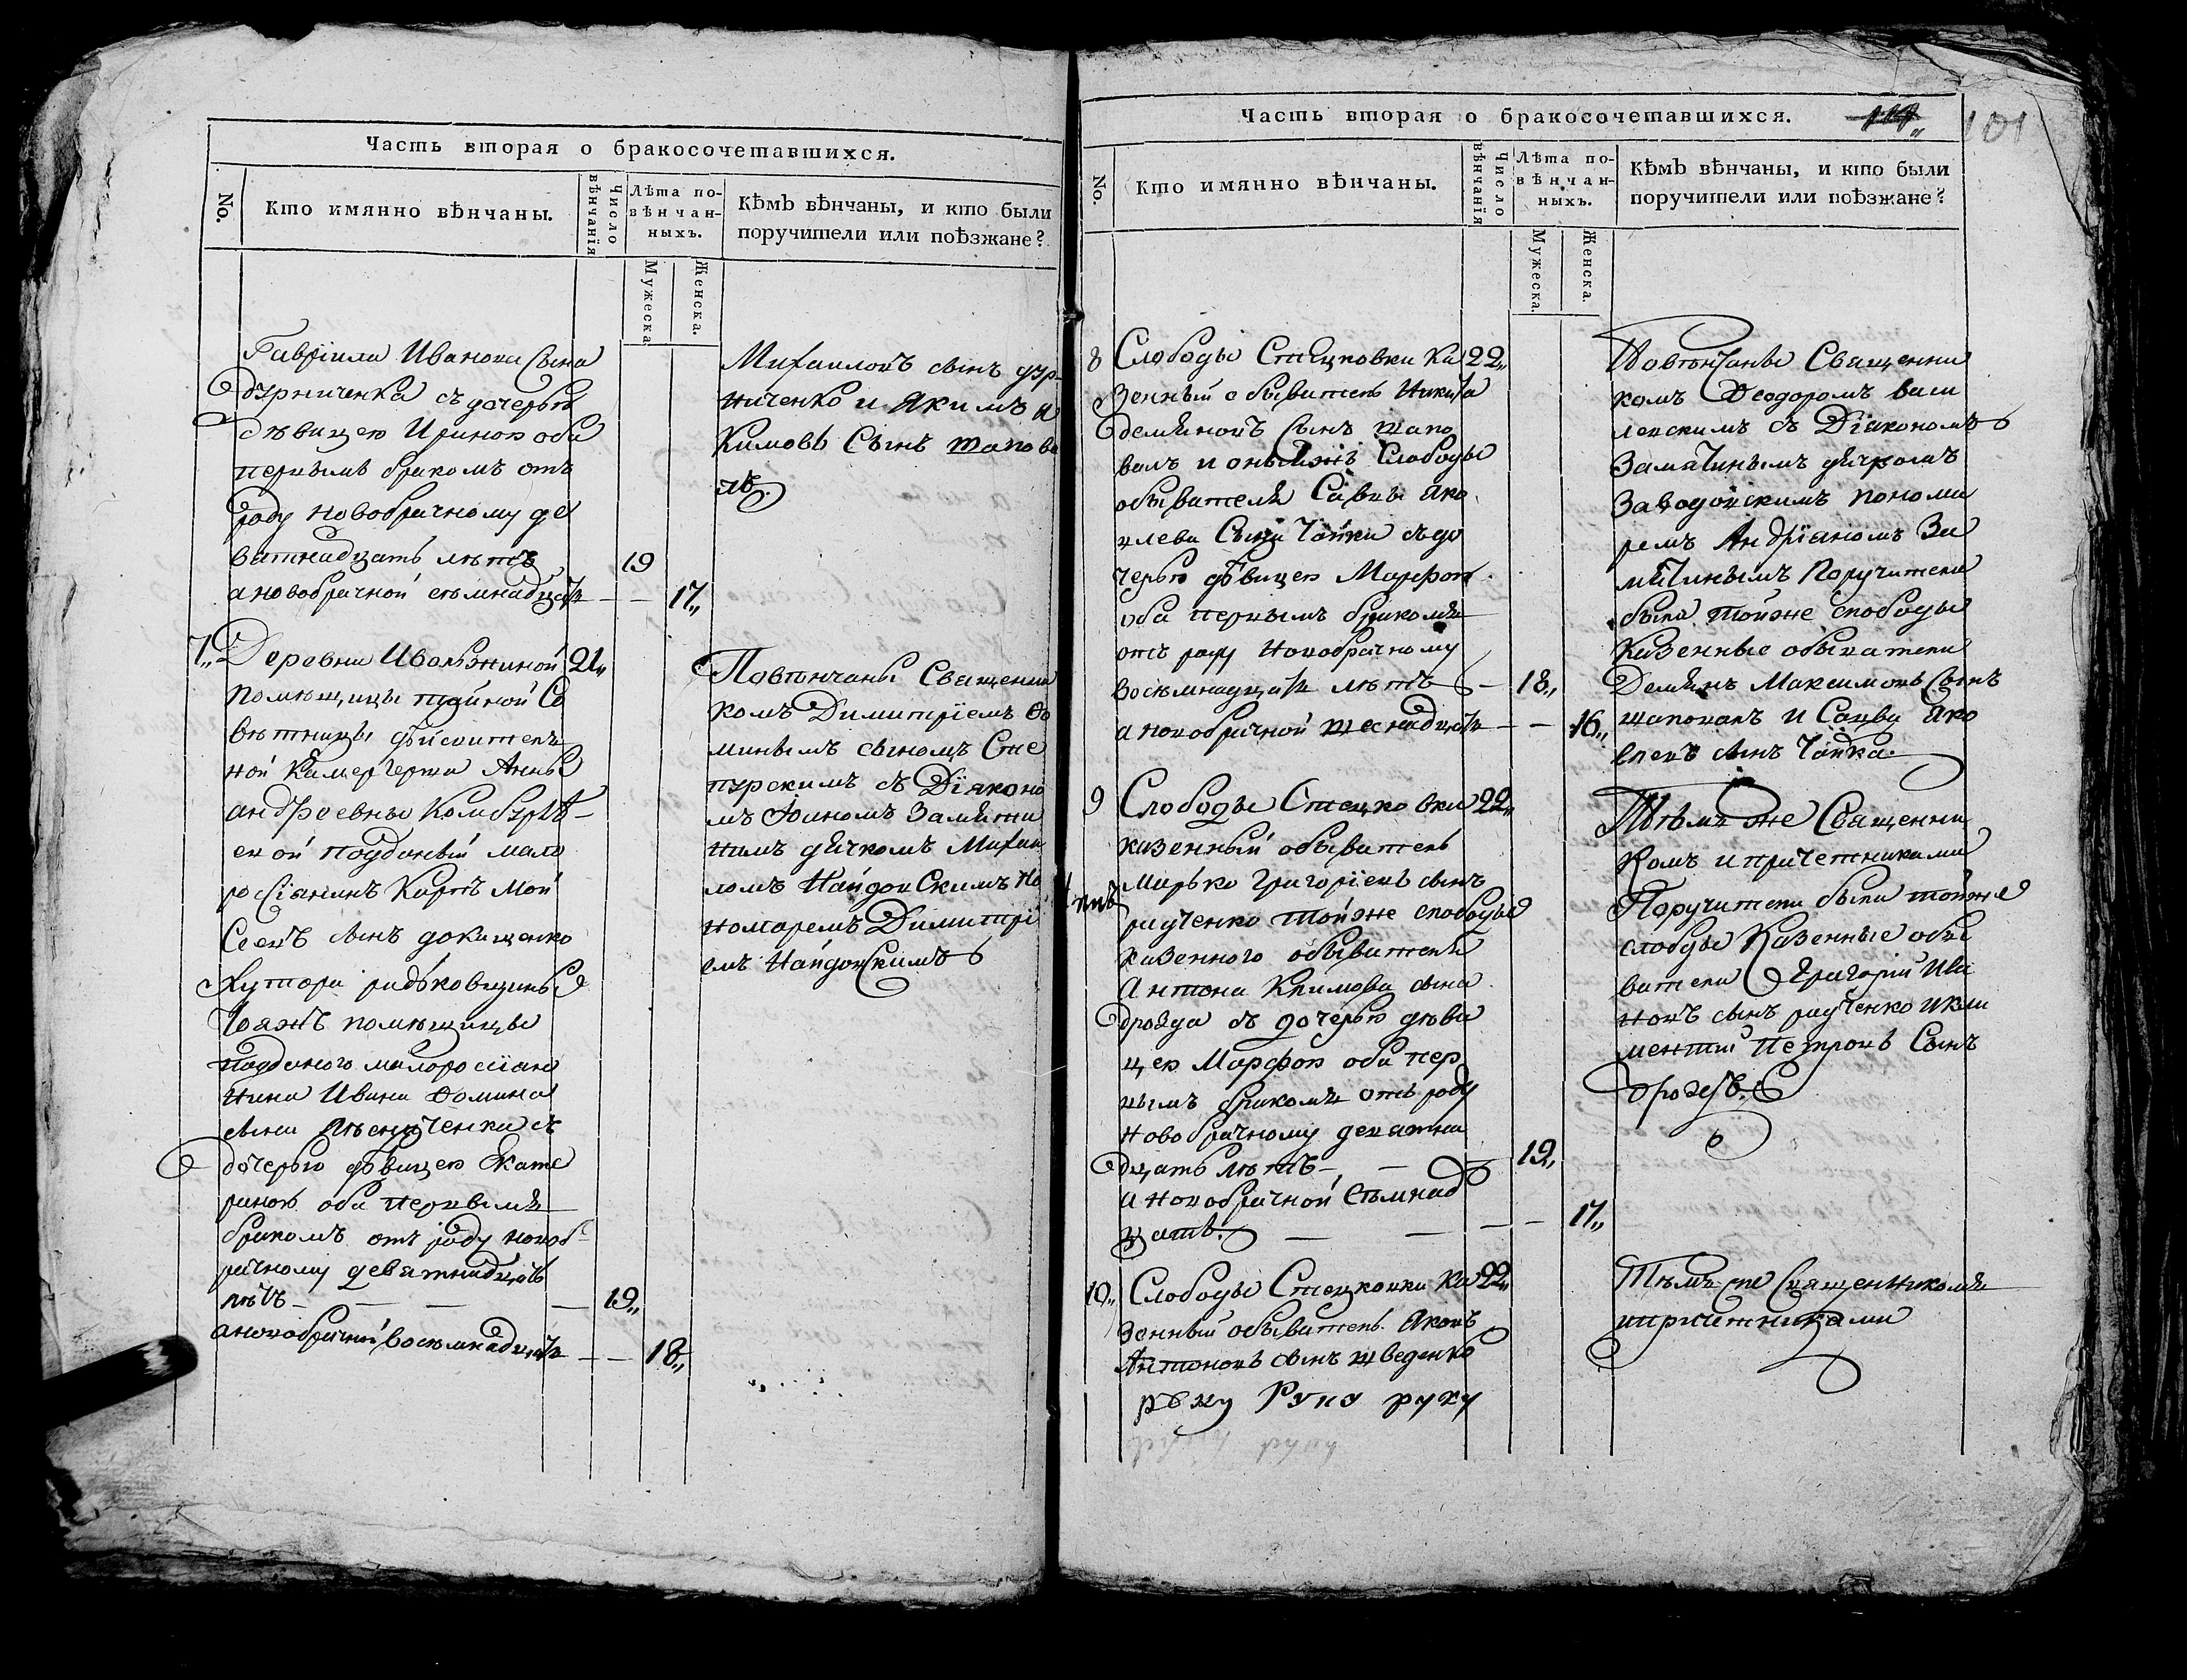 Часть вторая о бракосочетавшихся.
No.
Кто имянно вѣнчаны.
Число вѣнчанія
Лѣта повѣнчанныхъ.
Мужеска.
Женска.
Кѣмъ вѣнчаны, и кто были
поручители или поѣзжане?
Гавріила Иванова сына
дурниченка съ дочерью
дѣвицею Ириною оба
первымъ бракомъ отъ
роду новобрачному де
вятнадцать лѣтъ 19
а новобрачной семнадцать 17,,
Михаиловъ сынъ дур-
ниченко и Якимъ а
кимовъ Сынъ шапова
лъ.
7,, Деревни Иволжиной 21,,
помѣщицы тайной Со
вѣтницы дѣйствитель
ной Камергерши Анны
андреевны
подданный мало
россіанинъ Карпъ Мои
сеевъ сынъ докищенко
хутора радьковщины
тояжъ помѣщицы
подданого малороссіан
нина Ивана Фомина
сына съ
дочерью дѣвицею Екате
риною оба первымъ
бракомъ отъ роду новоб-
рачному девятнадцать
лѣтъ 19,,
а новобрачной восемнадцать 18,,
Повѣнчаны Священни
комъ Димитріемъ Фо
минымъ сыномъ Сте
пурскимъ съ Діаконо
мъ Іоаномъ Замяти
нимъ дячкомъ Михаи
ломъ Найдовскимъ по
номаремъ Димитрі
емъ Найдовскимъ
Часть вторая о бракосочетавшихся.
101
No.
Кто имянно вѣнчаны.
Число вѣнчанія
Лѣта повѣнчанныхъ.
Мужеска.
Женска.
Кѣмъ вѣнчаны, и кто были
поручители или поѣзжане?
8 Слободы Стецковки ка 22,,
зенный обыватель Никита
демяновъ сынъ шапо
валъ и оныяжъ Слободы
обывателя Савы Яко
влева Сына Чайки съ до
черью дѣвицею Марфою
оба первымъ бракомъ
отъ роду новобрачному
восемнадцать лѣтъ 18,,
а новобрачной шеснадцать 16,,
Повѣнчаны Священни
комъ Феодоромъ васи
левскимъ съ Діакономъ
Замятинымъ дячкомъ
Заводовскимъ понома
ремъ Андріаномъ За
мятинымъ Поручители
были тойже слободы
казенные обыватели
Демянъ Максимовъ сынъ
шаповалъ и Савва Яко
влевъ сынъ Чайка.
9 Слободы Стецковки 22,,
казенный обыватель
Марько Григоріевъ сынъ
радченко тойже слободы
казенного обывателя
Антона Климова сына
дрозда съ дочерью дѣви
цею Марфою оба пер
вымъ бракомъ отъ роду
новобрачному девятна
дцать лѣтъ 19,,
а новобрачной семнад
цать. 17,,
Тѣмъ же Священни
комъ и причетниками
Поручители были тойже
слободы казенные обы
ватели Григорій Ива
новъ сынъ радченко и кли
ментій Петровъ Сынъ
дроздъ.
10,, Слободы Стецковки ка 22,,
зенный обыватель Яковъ
Антоновъ сынъ шведенко
руку
Тѣмъ же Священникомъ
и причетниками